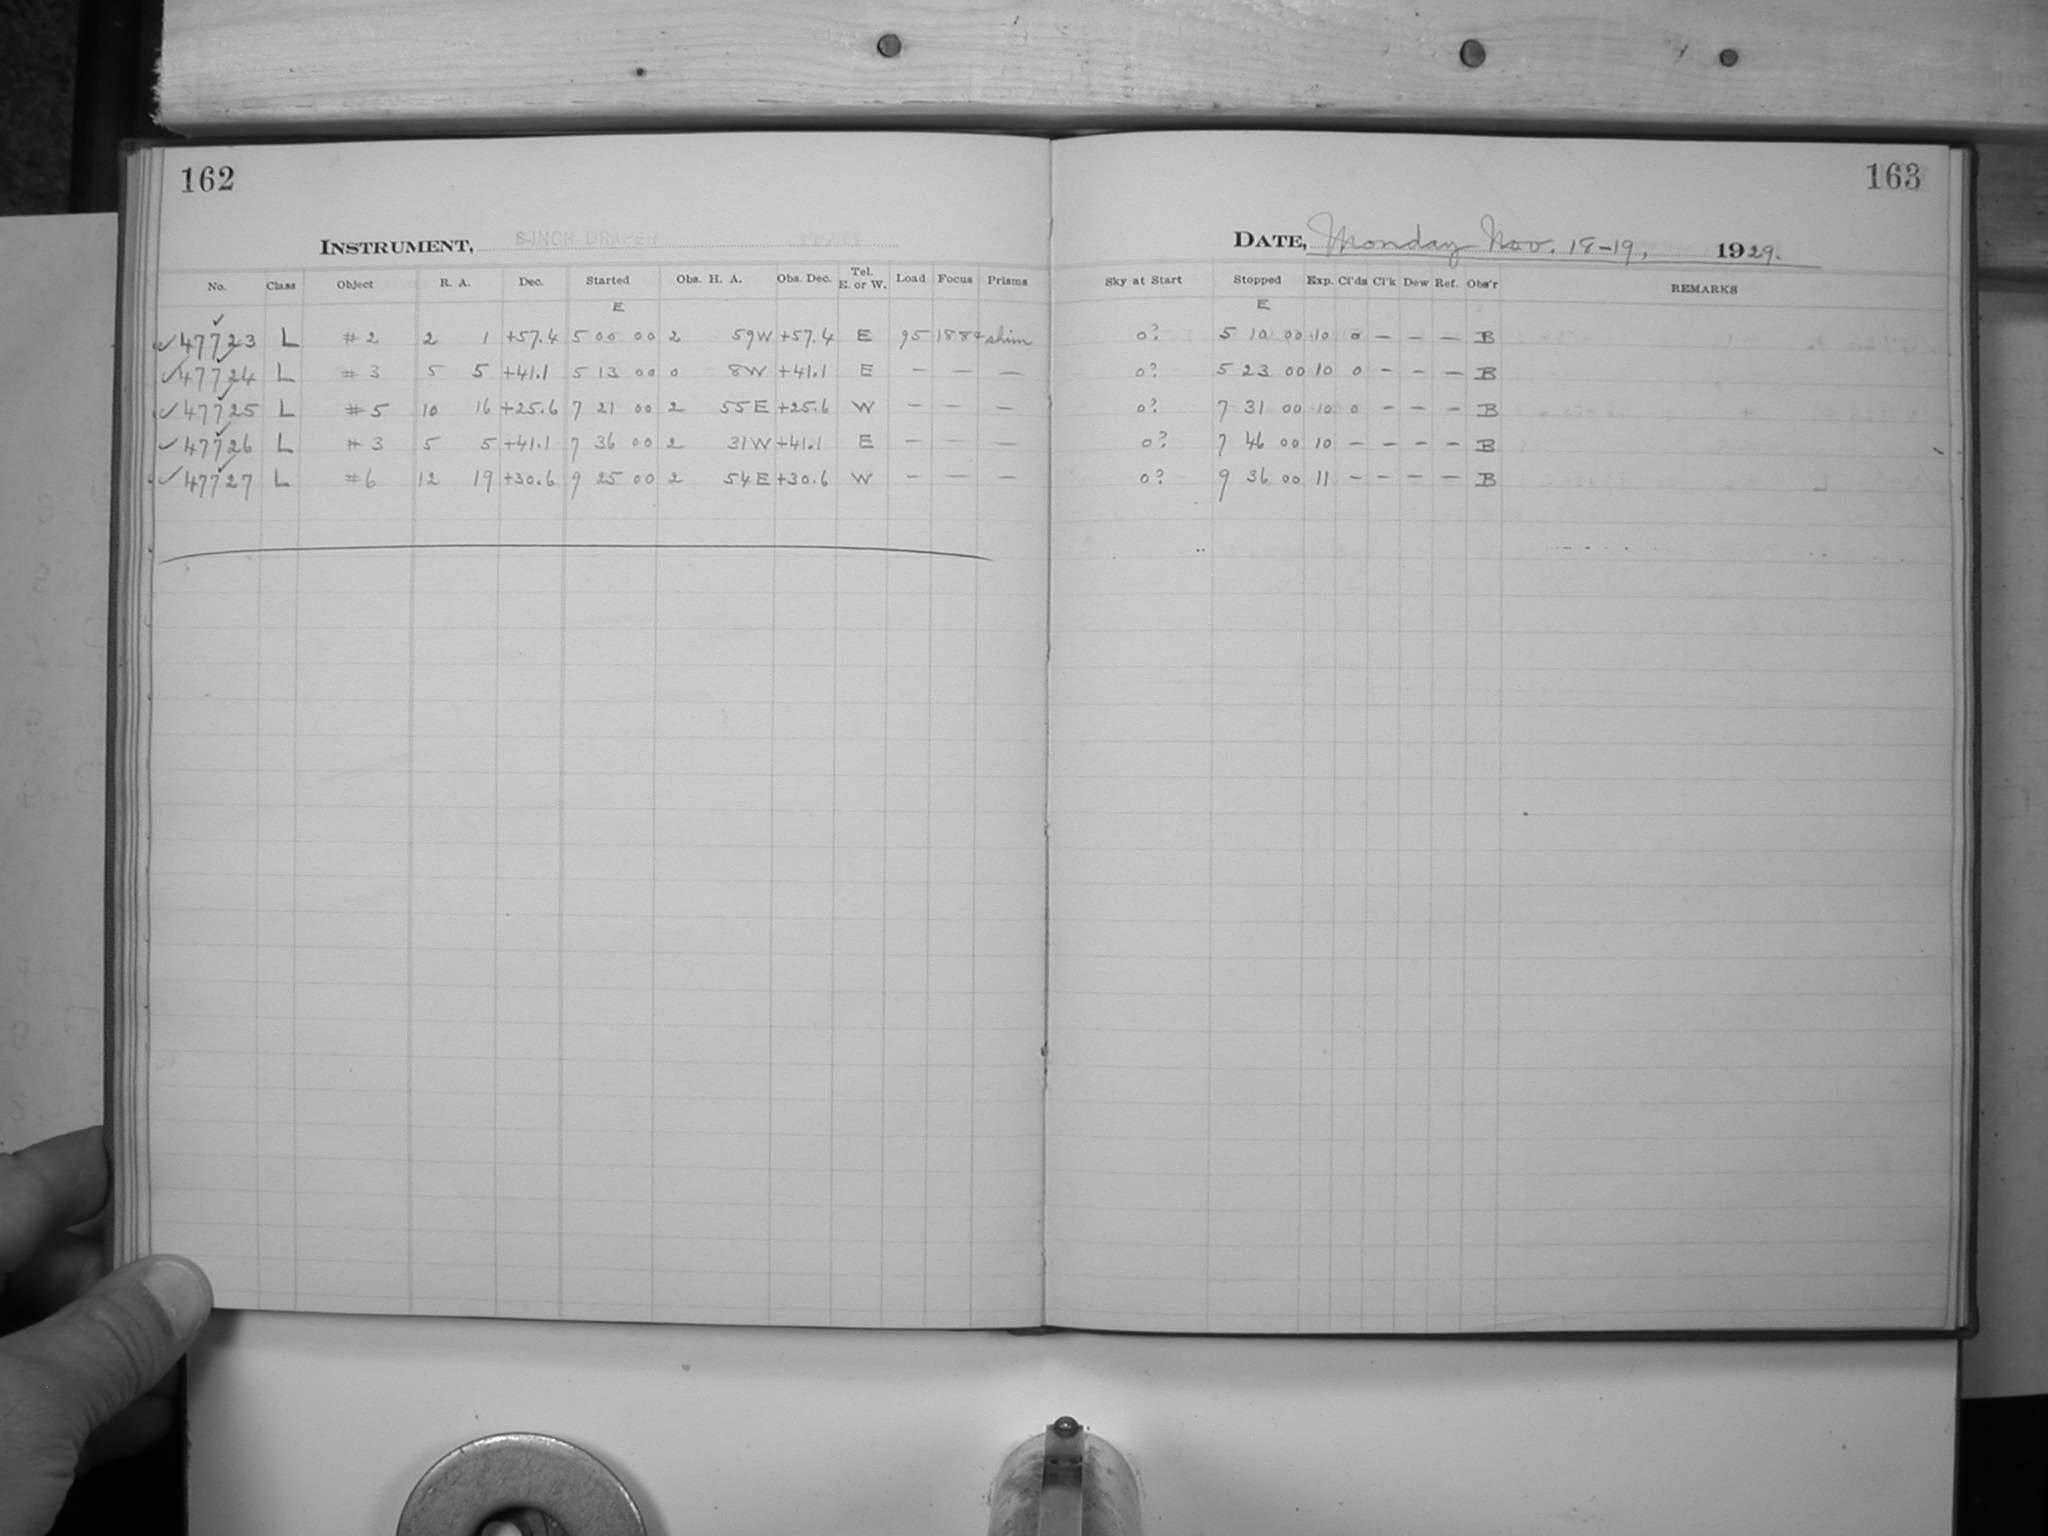 162
INSTRUMENT, 8-INCH DRAPER
No. Class Object R. A. Dec. Started Obs. H. A. Obs. Dec. Tel. E. or W. Load Focus Prisms
E
✓47723 L #2 2 1 +57.4 5 00 00 2 59W +57.4 E 95 shim
✓47724 L #3 5 5 +41.1 5 13 00 0 8W +41.1 E — — —
✓47725 L #5 10 16 +25.6 7 21 00 2 55E +25.6 W — — —
✓47726 L #3 5 5 +41.1 7 36 00 2 31W +41.1 E — — —
✓47727 L #6 12 19 +30.6 9 25 00 2 54E +30.6 W — — —
163
DATE, Monday Nov. 18-19, 1929.
Sky at Start Stopped Exp. Cl'ds Cl'k Dew Ref. Obs'r REMARKS
E
0? 5 10 00 10 0 — — — B
0? 5 23 00 10 0 — — — B
0? 7 31 00 10 0 — — — B
0? 7 46 00 10 — — — — B
0? 9 36 00 11 — — — — B